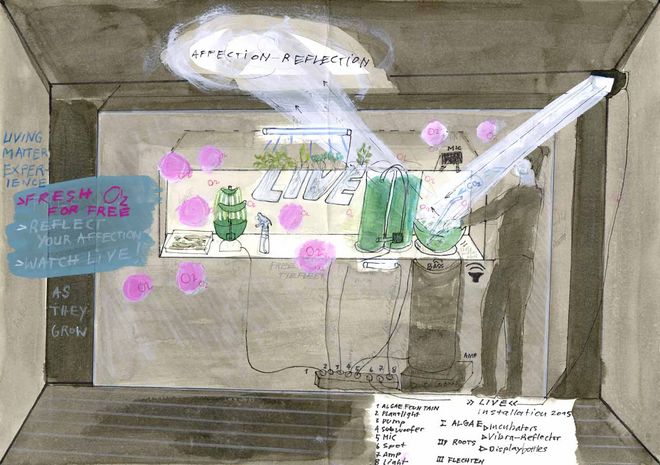 AFFECTION-REFLECTION
LIVING
MATTER
EXPER-
IENCE
>FRESH O2
FOR FREE
>REFLECT
YOUR AFFECTION
>WATCH LIVE!
AS
THEY
GROW
LIVE
MIC
O2
O2
O2
O2
O2
O2
O2
O2
O2
CO2
BASS
AMP
1 2 3 4 5 6 7 8
1 ALGAE FOUNTAIN
2 Plantlight
3 Pump
4 Subwoofer
5 MIC
6 Spot
7 Amp
8 Light
>> LIVE <<
installation 2005
I ALGAE
▷Incubators
▷Vibra-Reflector
▷Displaybottles
II ROOTS
III FLECHTEN